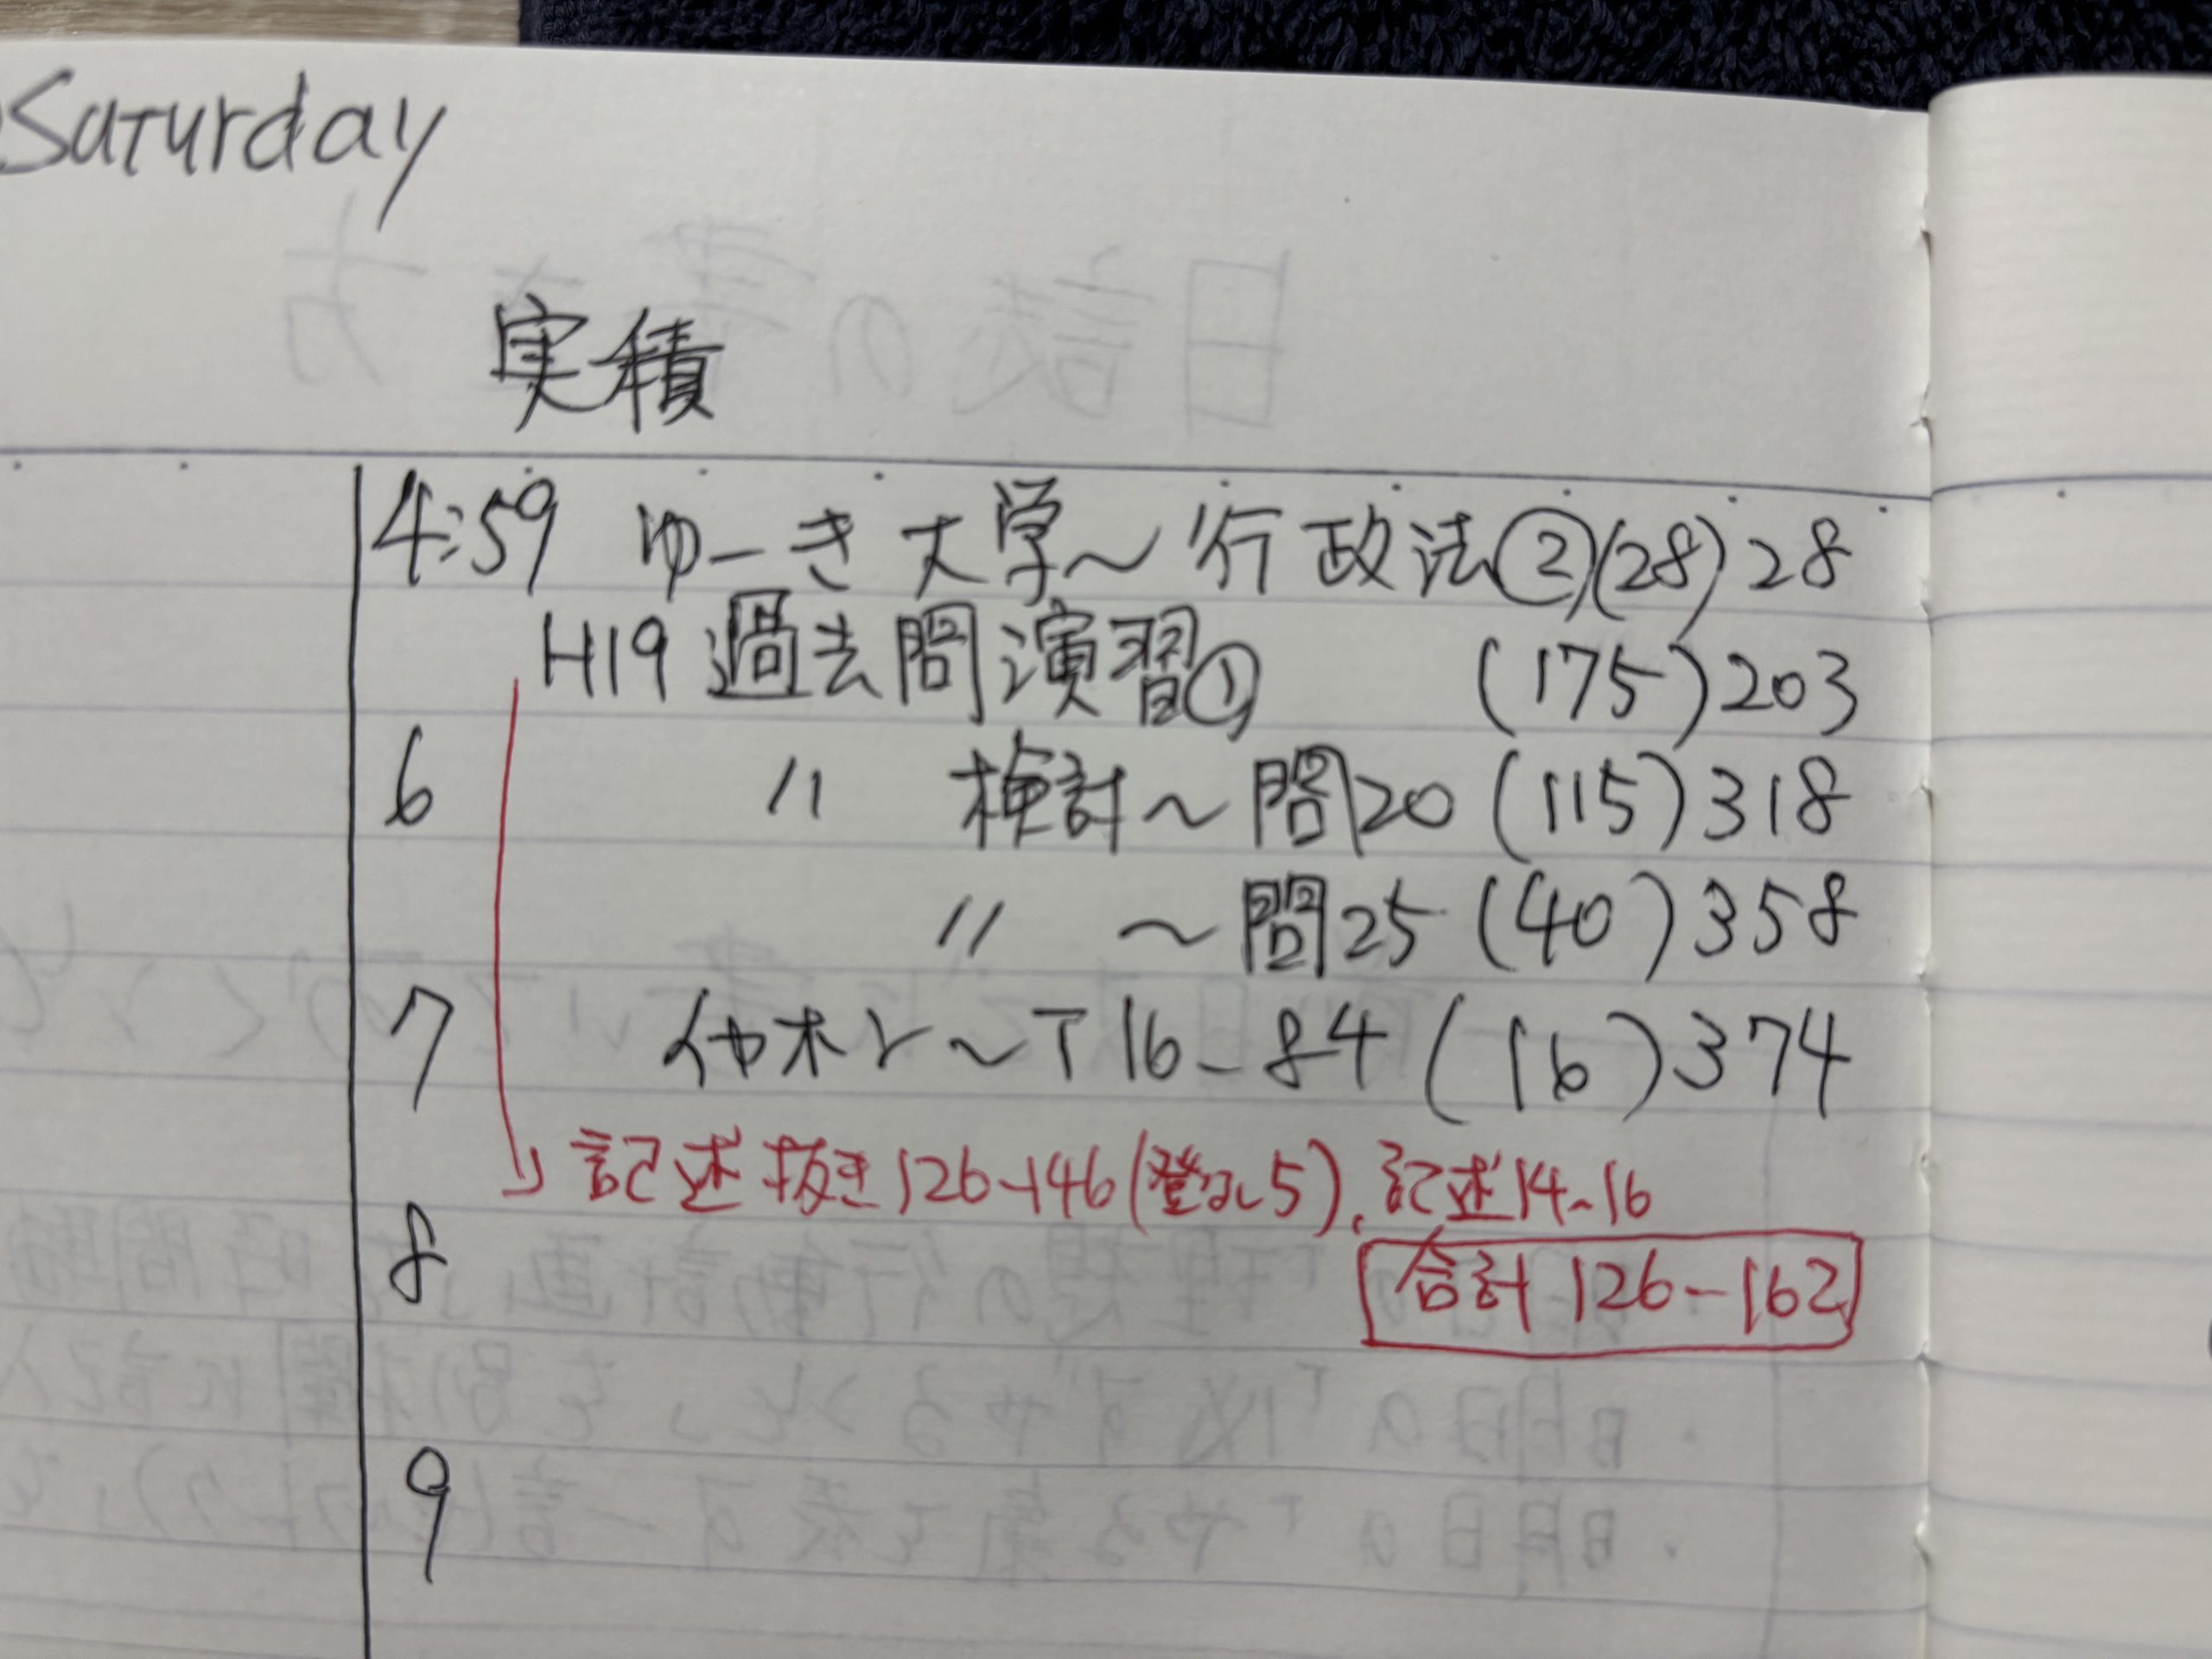 Saturday
実積
4:59 ゆーき大学〜行政法②(28)28
H19過去問演習① (175)203
6 〃 検討〜問20(115)318
〃 〜問25(40)358
7 〜T16-84(16)374
記述抜き126-146(登なし5)、記述14〜16
8 合計126-162
9